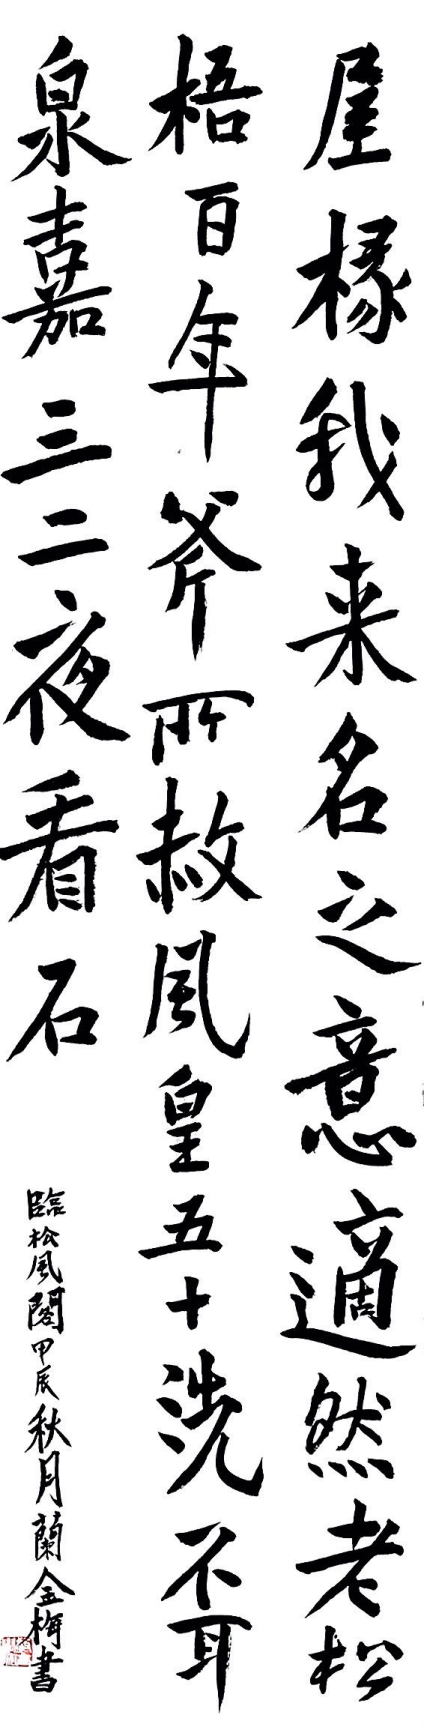 屋椽我来名之意適然老松
梧百年斧所赦風皇五十洗不耳
泉嘉三二夜看石
臨松風閣甲辰秋月蘭金梅書